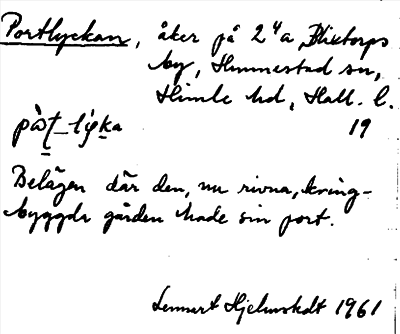 Portlyckan, åker på 2⁴a Blixtorps
by, Hunnestad sn,
Himle hd, Hall. l.
19
Belägen där den, nu rivna, kring-
byggda gården hade sin port.
Lennart Hjelmstedt 1961